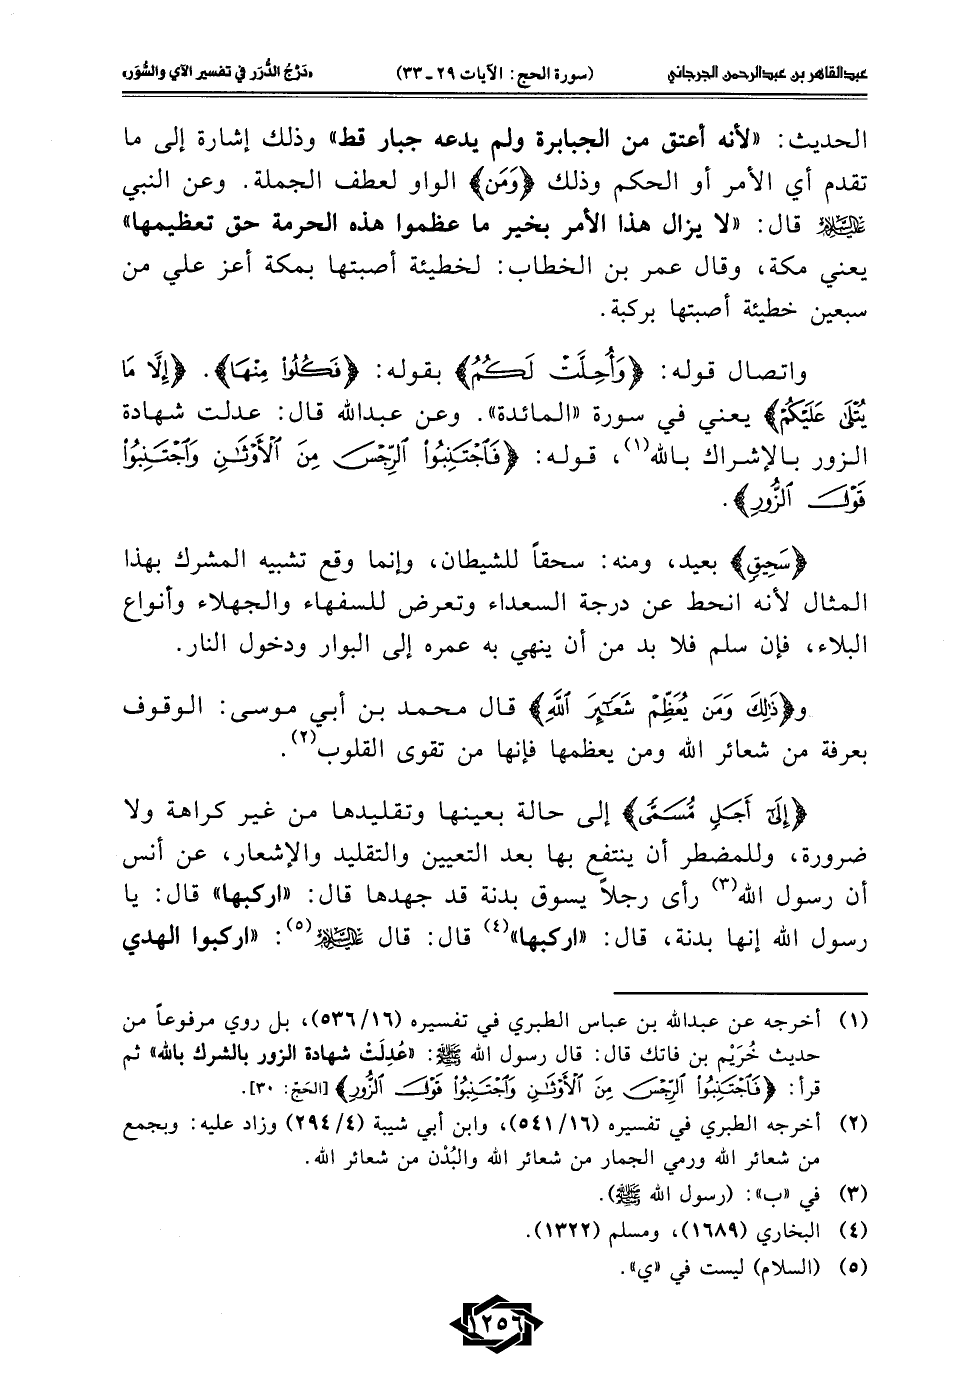 عبدالقاهر بن عبدالرحمن الجرجاني (سورة الحج: الآيات ٢٩ - ٣٣) «دَرْجُ الدُّرَر في تفسير الآي والسُّوَر»
الحديث: «لأنه أعتق من الجبابرة ولم يدعه جبار قط» وذلك إشارة إلى ما
تقدم أي الأمر أو الحكم وذلك ﴿وَمَن﴾ الواو لعطف الجملة. وعن النبي
عليه السلام قال: «لا يزال هذا الأمر بخير ما عظموا هذه الحرمة حق تعظيمها»
يعني مكة، وقال عمر بن الخطاب: لخطيئة أصبتها بمكة أعز علي من
سبعين خطيئة أصبتها بركبة.
واتصال قوله: ﴿وَأُحِلَّتْ لَكُمُ﴾ بقوله: ﴿فَكُلُوا۟ مِنْهَا﴾. ﴿إِلَّا مَا
يُتْلَىٰ عَلَيْكُمْ﴾ يعني في سورة «المائدة». وعن عبدالله قال: عدلت شهادة
الزور بالإشراك بالله(١)، قوله: ﴿فَٱجْتَنِبُوا۟ ٱلرِّجْسَ مِنَ ٱلْأَوْثَـٰنِ وَٱجْتَنِبُوا۟
قَوْلَ ٱلزُّورِ﴾.
﴿سَحِيقٍ﴾ بعيد، ومنه: سحقاً للشيطان، وإنما وقع تشبيه المشرك بهذا
المثال لأنه انحط عن درجة السعداء وتعرض للسفهاء والجهلاء وأنواع
البلاء، فإن سلم فلا بد من أن ينهي به عمره إلى البوار ودخول النار.
و﴿ذَٰلِكَ وَمَن يُعَظِّمْ شَعَـٰٓئِرَ ٱللَّهِ﴾ قال محمد بن أبي موسى: الوقوف
بعرفة من شعائر الله ومن يعظمها فإنها من تقوى القلوب(٢).
﴿إِلَىٰٓ أَجَلٍ مُّسَمًّى﴾ إلى حالة بعينها وتقليدها من غير كراهة ولا
ضرورة، وللمضطر أن ينتفع بها بعد التعيين والتقليد والإشعار، عن أنس
أن رسول الله(٣) رأى رجلاً يسوق بدنة قد جهدها قال: «اركبها» قال: يا
رسول الله إنها بدنة، قال: «اركبها»(٤) قال: قال عليه السلام(٥): «اركبوا الهدي
(١) أخرجه عن عبدالله بن عباس الطبري في تفسيره (٥٣٦/١٦)، بل روي مرفوعاً من
حديث خُرَيْم بن فاتك قال: قال رسول الله ﷺ: «عُدِلَتْ شهادة الزور بالشرك بالله» ثم
قرأ: ﴿فَٱجْتَنِبُوا۟ ٱلرِّجْسَ مِنَ ٱلْأَوْثَـٰنِ وَٱجْتَنِبُوا۟ قَوْلَ ٱلزُّورِ﴾ [الحَجّ: ٣٠].
(٢) أخرجه الطبري في تفسيره (٥٤١/١٦)، وابن أبي شيبة (٢٩٤/٤) وزاد عليه: وبجمع
من شعائر الله ورمي الجمار من شعائر الله والبُدْن من شعائر الله.
(٣) في «ب»: (رسول الله ﷺ).
(٤) البخاري (١٦٨٩)، ومسلم (١٣٢٢).
(٥) (السلام) ليست في «ي».
١٢٥٦